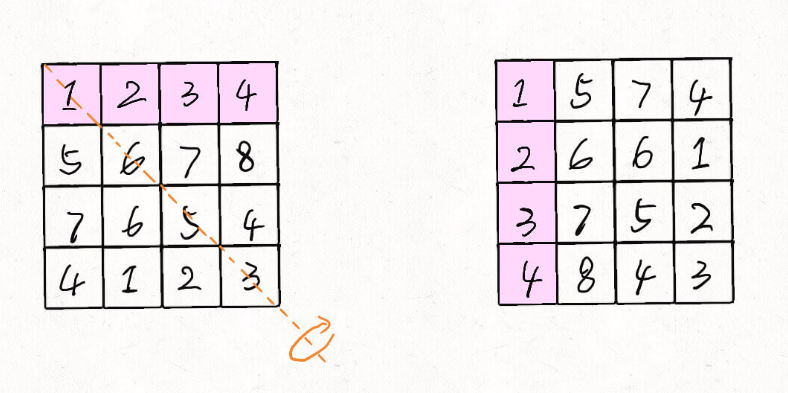 1 2 3 4
5 6 7 8
7 6 5 4
4 1 2 3
1 5 7 4
2 6 6 1
3 7 5 2
4 8 4 3